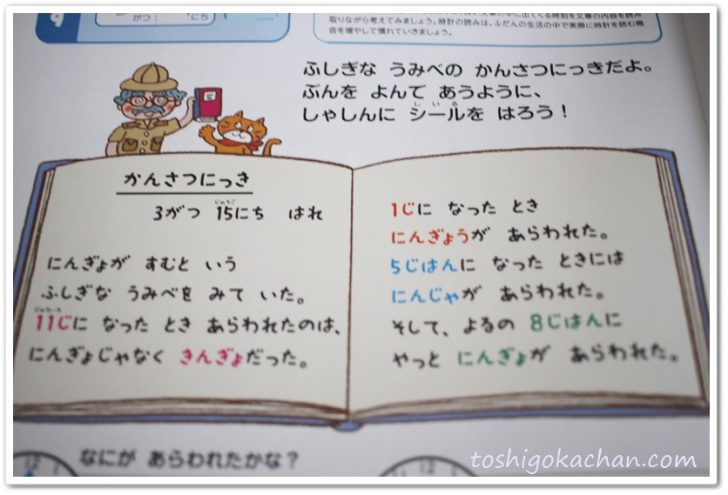 がつ　にち
取りながら考えてみましょう。時計の読みは、ふだんの生活の中で実際に時計を読む機
会を増やして慣れていきましょう。
ふしぎな うみべの かんさつにっきだよ。
ぶんを よんで あうように、
しゃしんに シールを はろう！
かんさつにっき
3がつ 15にち はれ
にんぎょが すむと いう
ふしぎな うみべを みて いた。
11じに なった とき あらわれたのは、
にんぎょじゃなく きんぎょだった。
1じに なった とき
にんぎょうが あらわれた。
5じはんに なった ときには
にんじゃが あらわれた。
そして、よるの 8じはんに
やっと にんぎょが あらわれた。
なにが あらわれたかな？
12
12
toshigokachan.com